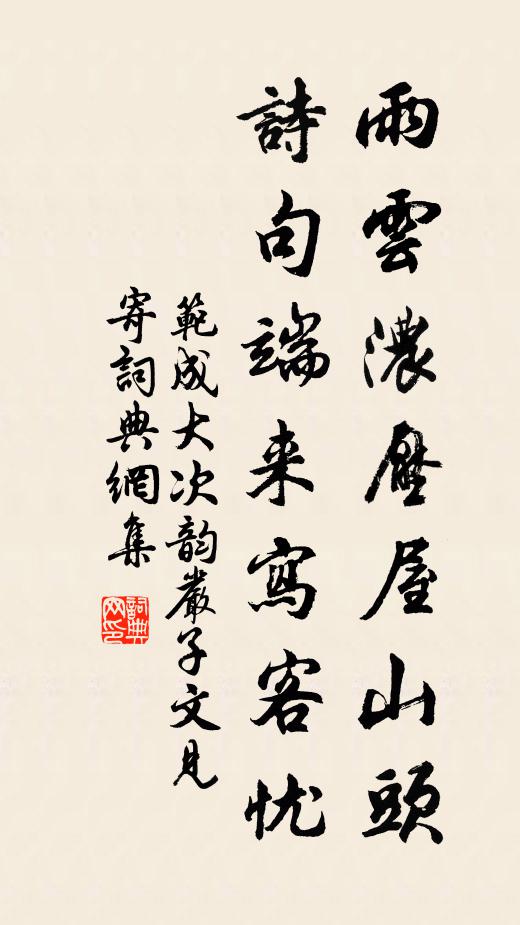 雨雲濃壓屋山頭
詩句端来寫客忧
範成大次韵嚴子文見
寄詞典網集
詞典网印